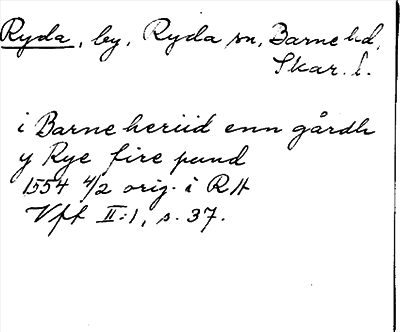 Ryda, by, Ryda sn, Barne hd,
Skar. l.
i Barne heriid enn gårdh
y Rye fire pund
1554 4/2 orig. i RA
Vff II:1, s. 37.